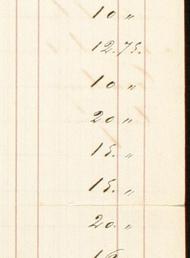 10 "
12.75.
10 "
20 "
15. "
15. "
20. "